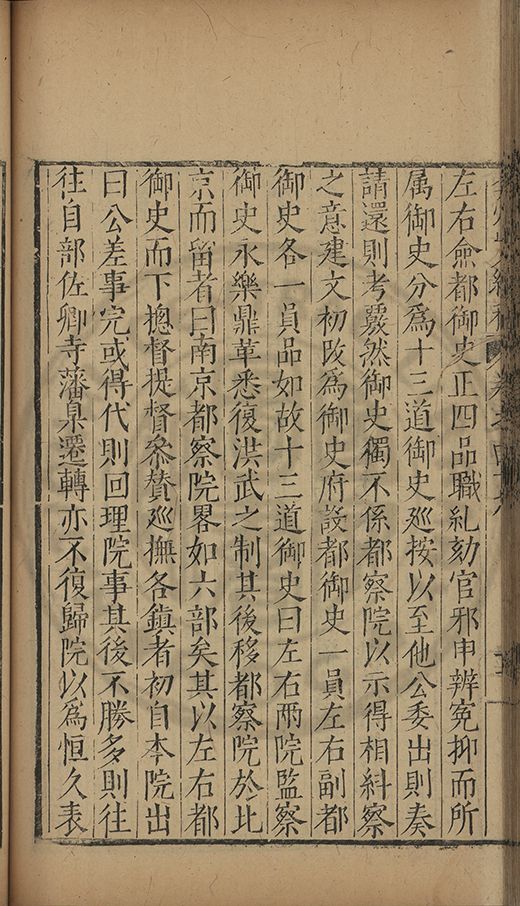 左右僉都御史正四品職糺劾官邪申辨寃抑而所
属御史分爲十三道御史廵按以至他公委出則奏
請還則考覈然御史獨不係都察院以示得相糾察
之意建文初改爲御史府設都御史一員左右副都
御史各一員品如故十三道御史曰左右兩院監察
御史永樂鼎革悉復洪武之制其後移都察院於北
京而留者曰南京都察院畧如六部矣其以左右都
御史而下摠督提督叅賛廵撫各鎮者初自本院出
曰公差事完或得代則回理院事其後不勝多則往
徃自部佐卿寺藩臬遷轉亦不復歸院以爲恒久表